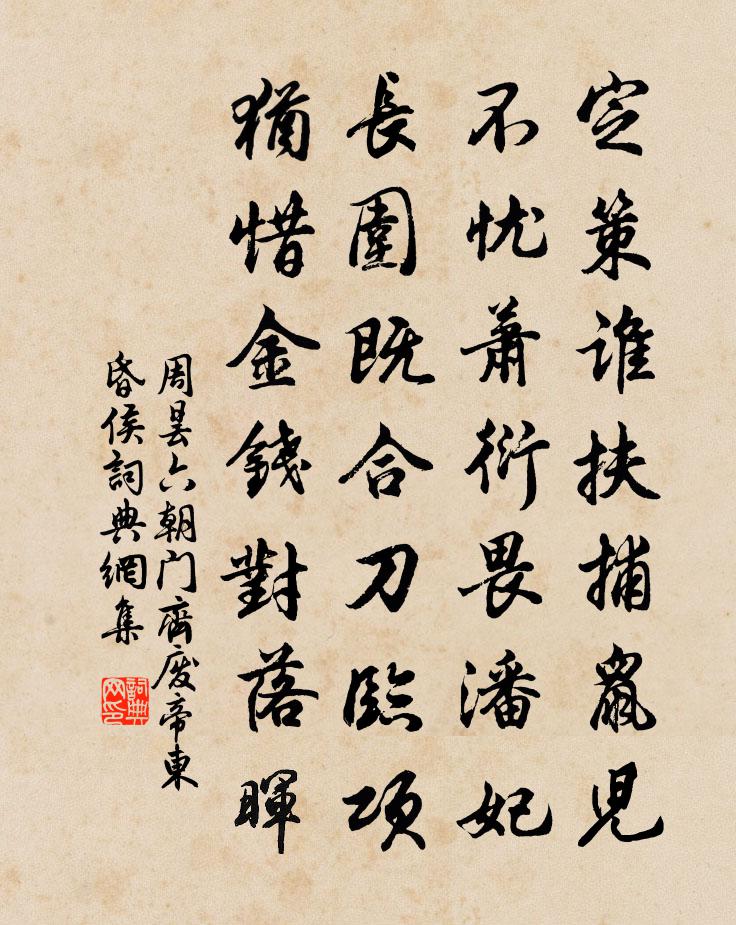 定策誰扶捕鼠兒
不忧蕭衍畏潘妃
長圍既合刀臨項
猶惜金錢對落暉
周曇六朝门齊废帝東
昏侯詞典網集
詞典网印